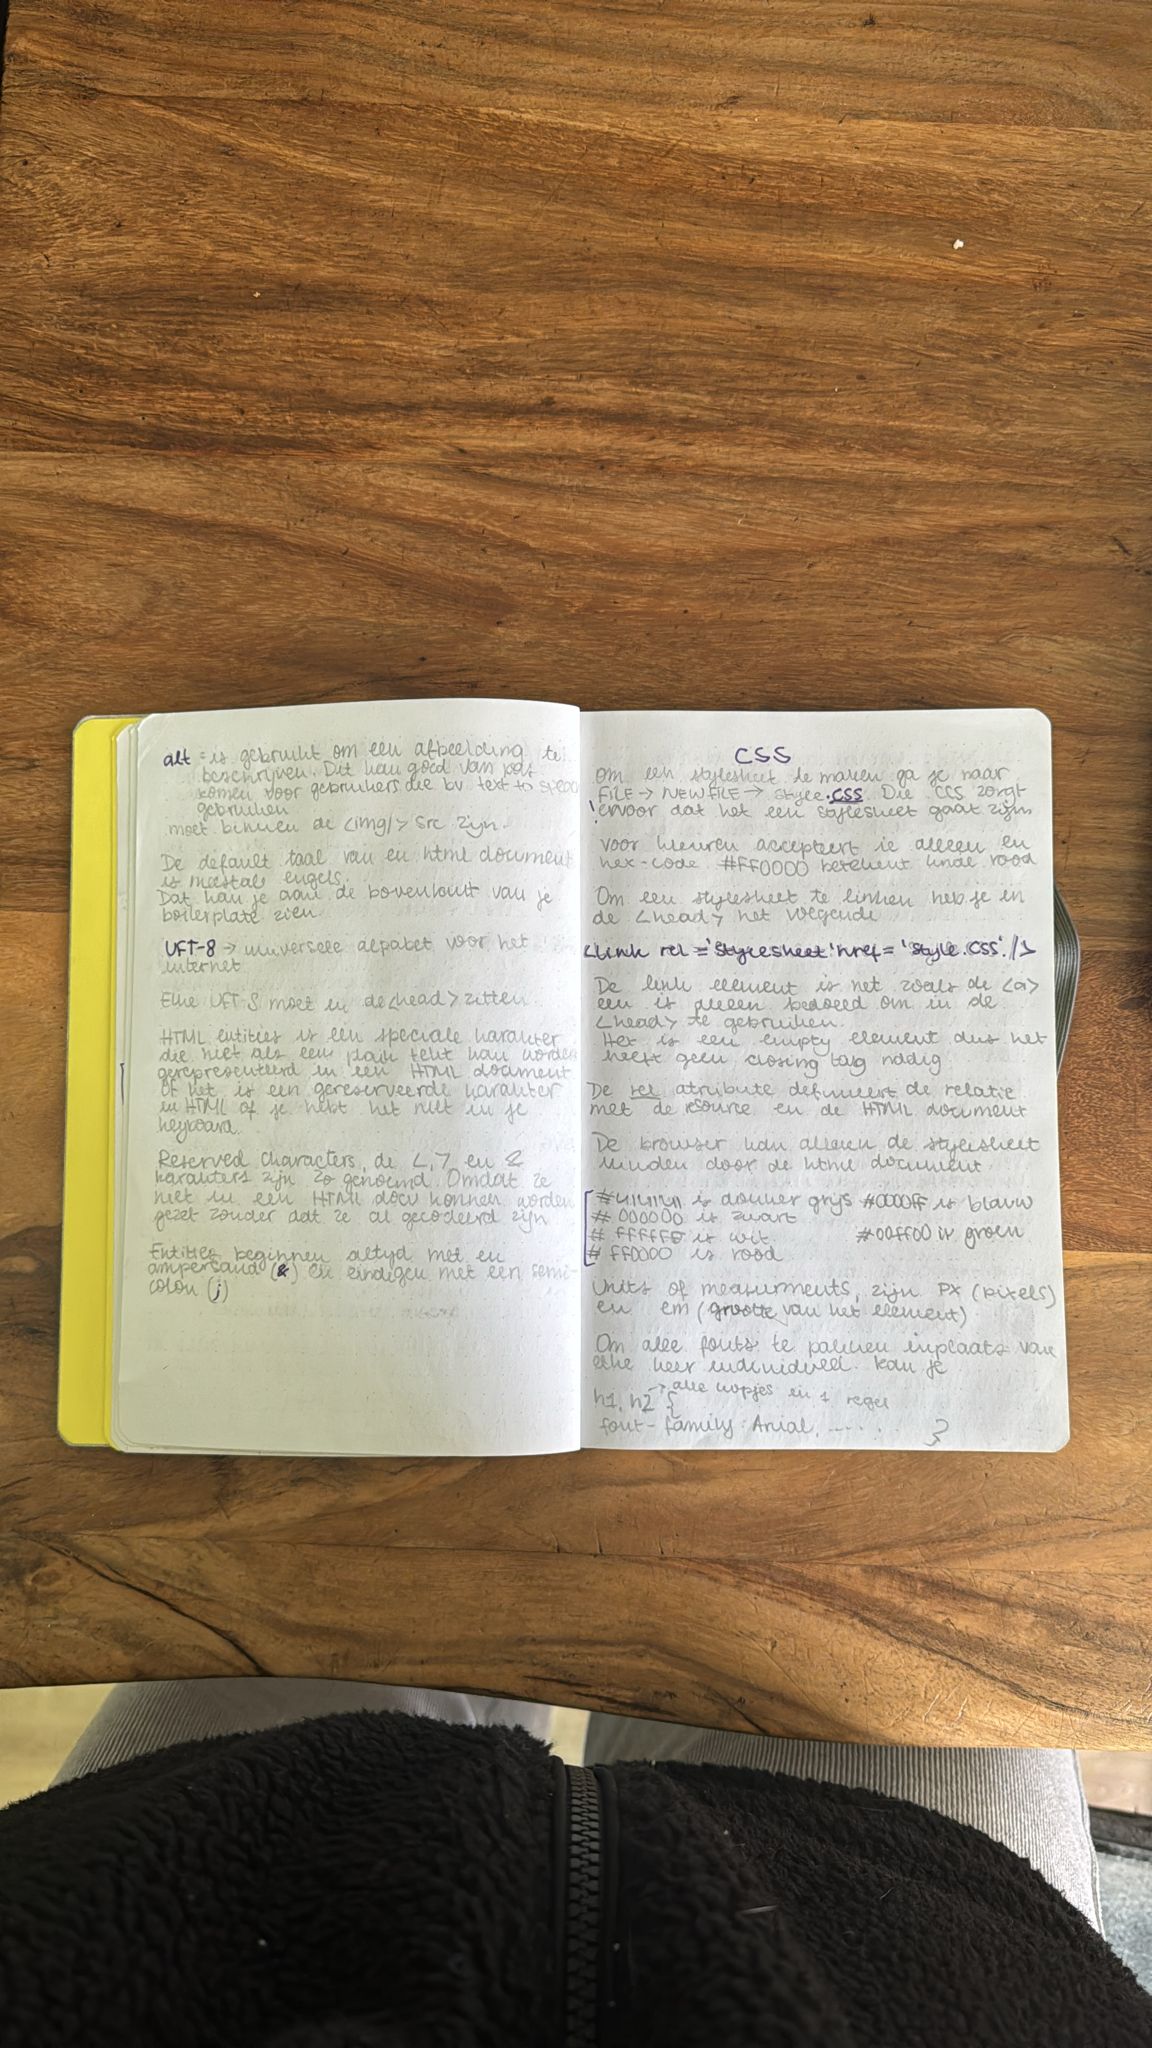 alt = is gebruikt om een afbeelding te
beschrijven. Dit kan goed van pas
komen voor gebruikers die bv text to
gebruiken
moet binnen de <img/> src zijn.
De default taal van en html document
is meestal engels.
Dat kan je aan de bovenkant van je
boilerplate zien
UFT-8 → universele alpabet voor het
internet
Elke UFT-8 moet in de <head> zitten
HTML entities is een speciale karakter
die niet als een plain tekt kan worden
gerepresenteerd in een HTML document
Of het is een gereserveerde karakter
in HTML of je hebt het niet in je
keyboard.
Reserved characters, de <, > en &
karakters zijn zo genoemd. Omdat ze
niet in een HTML docu konnen worden
gezet zonder dat ze al gecodeerd zijn
Entities beginnen altyd met en
ampersand (&) en eindigen met een semi-
colon (;)
CSS
Om een stylesheet te maken ga je naar
FILE → NEW FILE → style.CSS. Die CSS zorgt
ervoor dat het een stylesheet gaat zijn
voor kleuren accepteert ie alleen en
hex-code #FF0000 betekent linde rood
Om een stylesheet te linken heb je in
de <head> het volgende
<link rel = 'stylesheet' href = 'style.css' />
De link element is net zoals de <a>
een is alleen bedoed om in de
<head> te gebruiken.
Het is een empty element dus het
heeft geen closing tag nodig
De rel atribute definieert de relatie
met de resource en de HTML document
De browser kan alleen de stylesheet
vinden door de html document
is donker grijs #0000FF is blauw
# 000000 is zwart
# FFFFFF is wit #00FF00 is groen
# FF0000 is rood
Units of measurments, zijn PX (pixels)
en em (grootte van het element)
Om alle fonts te pakken inplaats van
elke keer individueel kan je
→ alle kopjes in 1 regel
h1, h2 {
font-family: Arial, ..... }